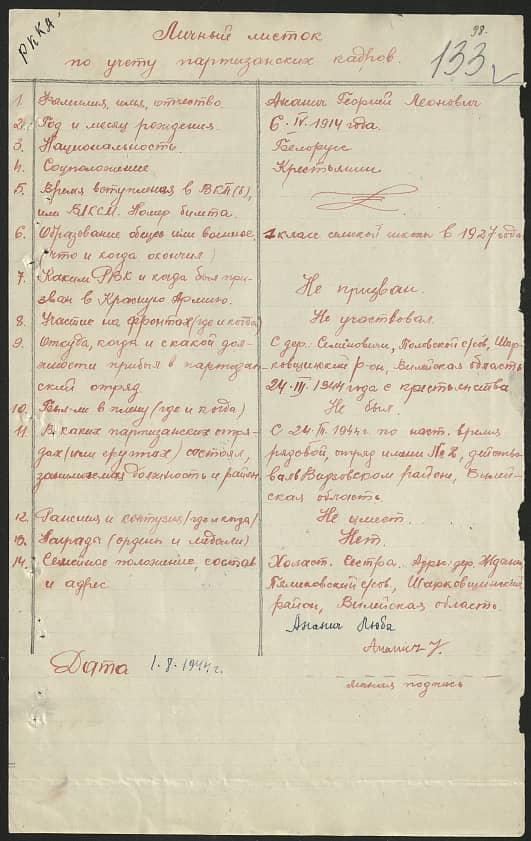 РККА
98.
133
Личный листок
по учету партизанских кадров.
1. Фамилия, имя, отчество Ананич Георгий Леонович
2. Год и месяц рождения. 6. IV. 1914 года.
3. Национальность. Белорус
4. Соцположение Крестьянин
5. Время вступления в ВКП(б),
или ВЛКСМ. Номер билета.
6. Образование общее или военное. 1 класс сельской школы в 1927 году
(что и когда окончил)
7. Каким РВК и когда был при-
зван в Красную Армию. Не призван.
8. Участие на фронтах (где и когда) Не участвовал.
9. Откуда, когда и с какой дол- С дер. Семёновичи, с/сов, Шар-
жности прибыл в партизан- ковщинский р-он, Вилейская область
ский отряд 24. III. 1944 года с крестьянства
10. Был ли в плену (где и когда) Не был.
11. В каких партизанских отря- С 24. III. 1944 г. по наст. время
дах (или группах) состоял, рядовой, отряд имени № 2, действо-
занимаемая должность и район вал в Видзовском районе, Вилей-
ская область
12. Ранения и контузия (где и когда) Не имеет.
13. Награды (ордена и медали) Нет.
14. Семейное положение, состав Холост. Сестра. Адрес: дер.
и адрес с/сов, Шарковщинский
район, Вилейская область.
Ананич Люба
Ананич
Дата 1. 8. 1944 г.
личная подпись